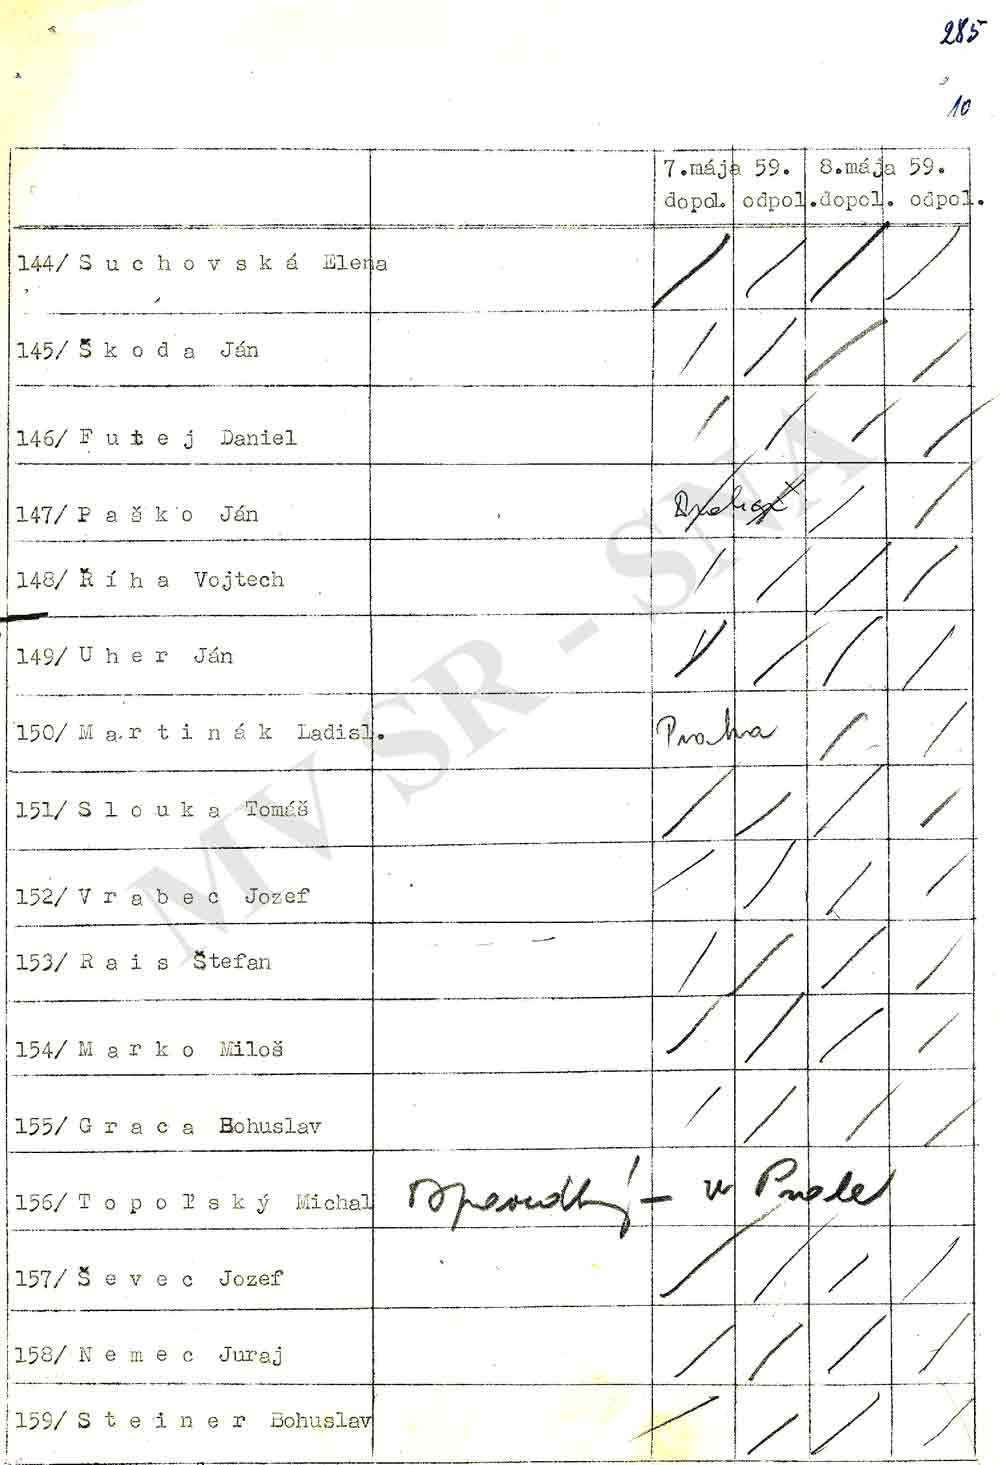 285
10
7.mája 59. 8.mája 59.
dopol. odpol. dopol. odpol.
144/ S u c h o v s k á Elena
145/ Š k o d a Ján
146/ F u t e j Daniel
147/ P a š k o Ján
148/ Ř í h a Vojtech
149/ U h e r Ján
150/ M a r t i n á k Ladisl. Praha
151/ S l o u k a Tomáš
152/ V r a b e c Jozef
153/ R a i s Štefan
154/ M a r k o Miloš
155/ G r a c a Bohuslav
156/ T o p o ľ s k ý Michal - v Prahe
157/ Š e v e c Jozef
158/ N e m e c Juraj
159/ S t e i n e r Bohuslav
MV SR - SNA